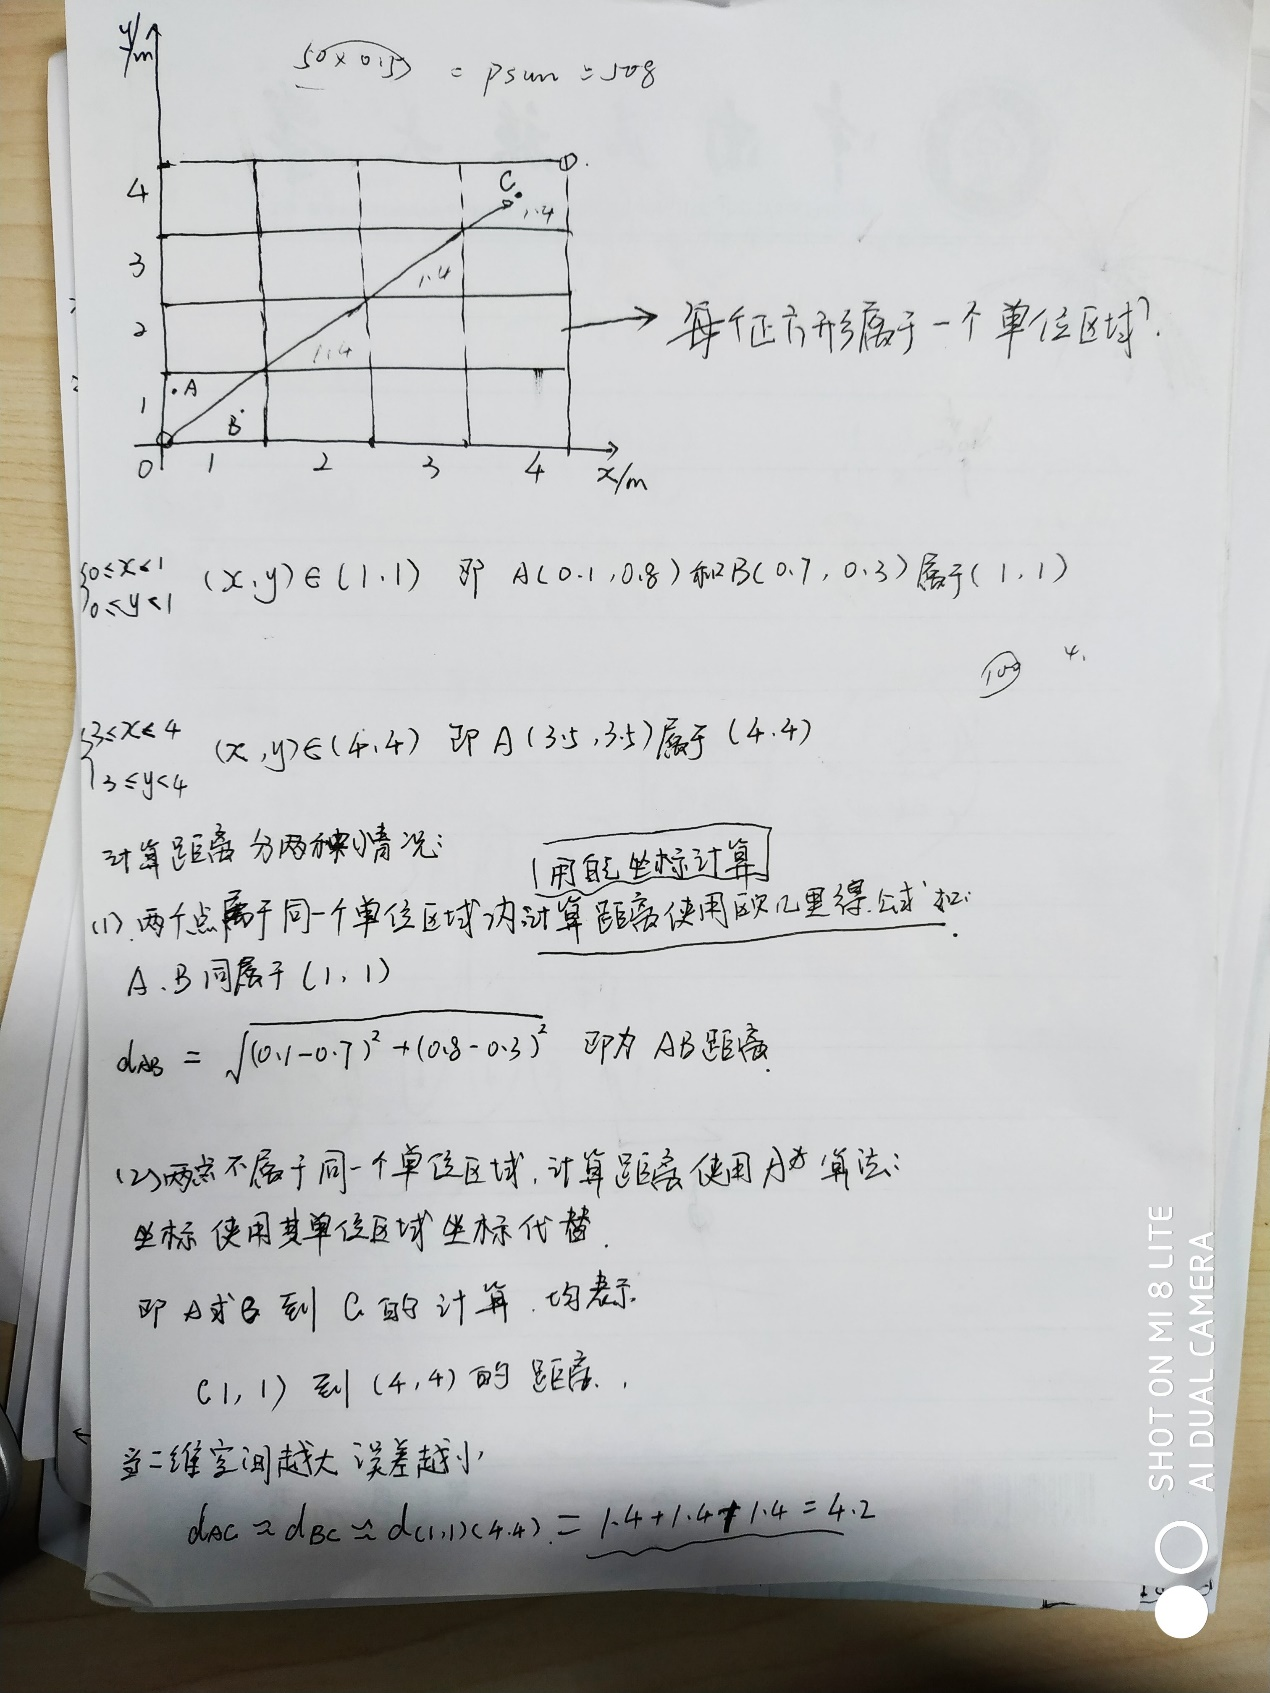 y/m
= psun = 508
4
3
2
1
0 1 2 3 4 x/m
C
1.4
1.4
1.4
A
B
每个正方形属于一个单位区域.
{0≤x<1 0≤y<1 (x,y)∈(1,1) 即 A(0.1,0.8)和B(0.7,0.3)属于(1,1)
100 4.
{3≤x≤4 3≤y<4 (x,y)∈(4,4) 即A(3.5,3.5)属于(4.4)
计算距离分两种情况:
用自己坐标计算
(1).两个点属于同一个单位区域内,计算距离使用欧几里得公式 如:
A.B同属于(1,1)
dAB = √(0.1-0.7)²+(0.8-0.3)² 即为AB距离.
(2)两点不属于同一个单位区域,计算距离使用A*算法:
坐标使用其单位区域坐标代替.
即A或B到C的计算.均表示
(1,1)到(4,4)的距离.
当二维空间越大误差越小
dAC ≈ dBC ≈ d(1,1)(4.4) = 1.4+1.4+1.4=4.2
SHOT ON MI 8 LITE
AI DUAL CAMERA